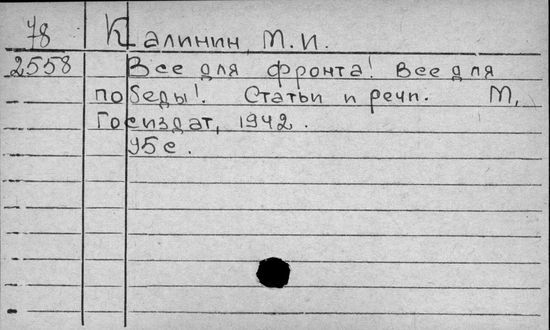 78 Калинин М.И.
2558 Все для фронта! Все для
победы! Статьи и речи. М,
Госиздат, 1942.
95с.